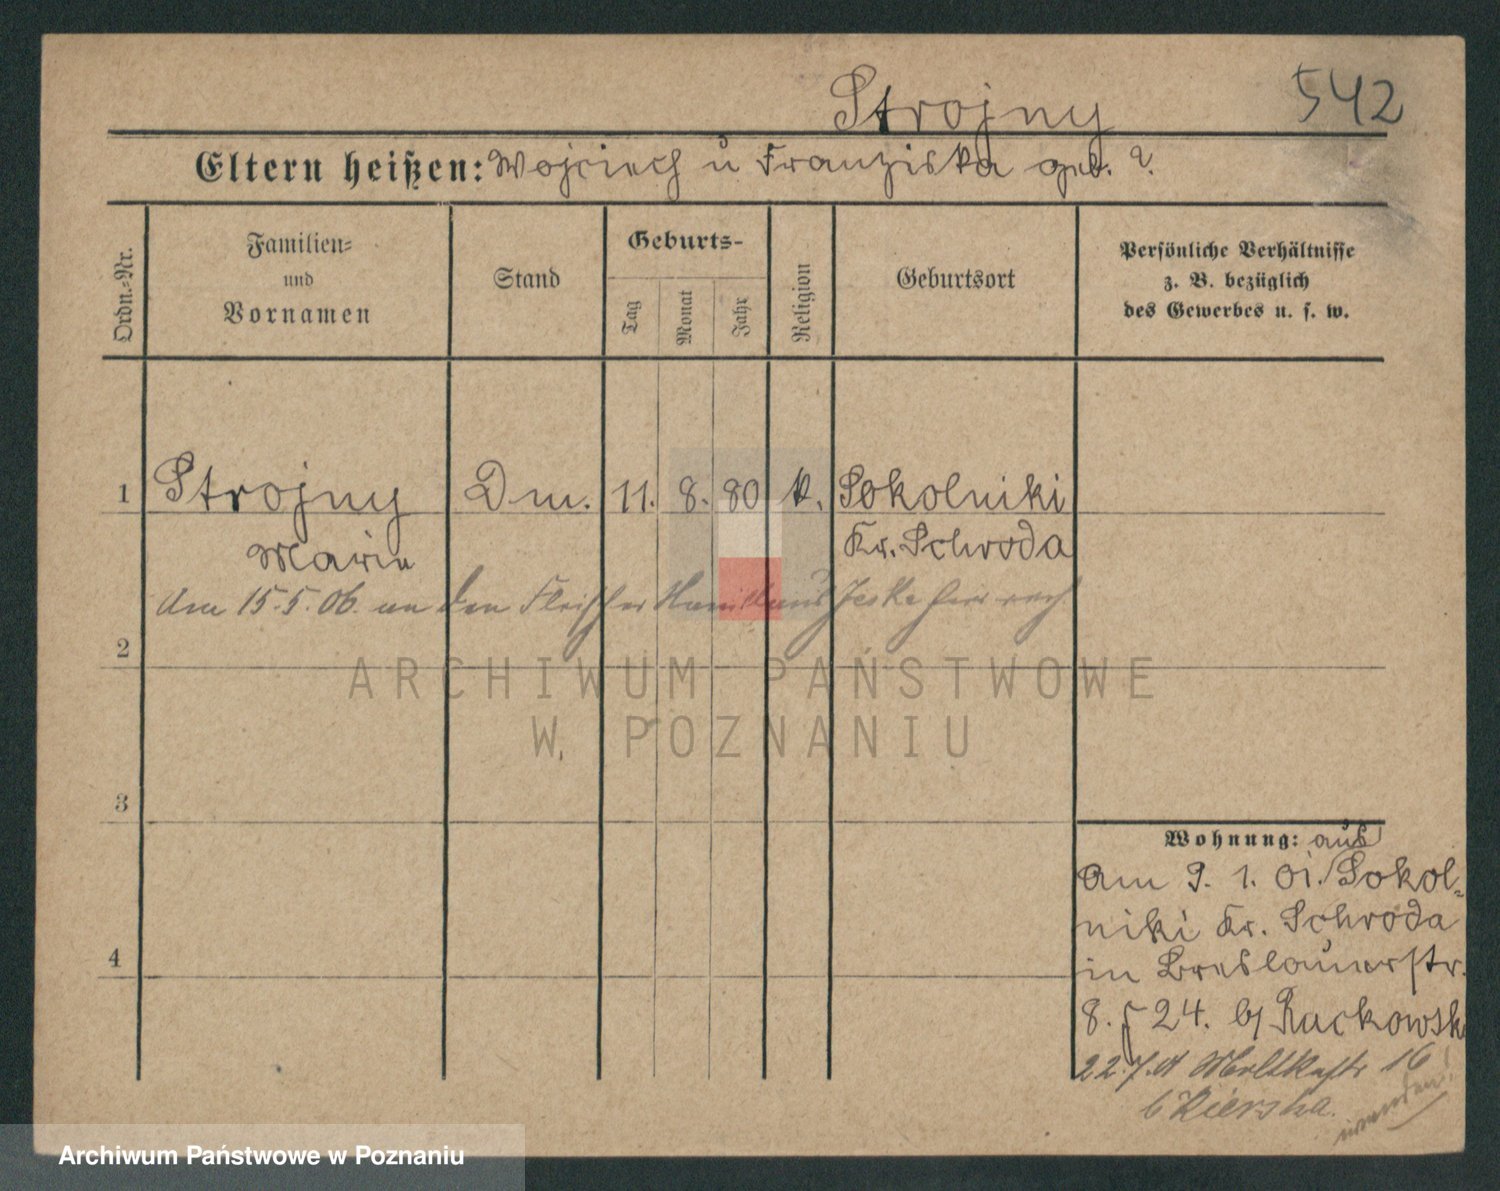 Strojny 542
Eltern heißen: Wojciech u Franziska geb. ?
Ordn.-Nr.
Familien-
und
Vornamen
Stand
Geburts-
Tag
Monat
Jahr
Religion
Geburtsort
Persönliche Verhältnisse
z. B. bezüglich
des Gewerbes u. s. w.
1 Strojny Dm. 11. 8. 80 k. Sokolniki
Marie Kr. Schroda
Am 15.5.06. an den Fleischer aus Jeske hier
2
ARCHIWUM PAŃSTWOWE
W POZNANIU
3
Wohnung: aus
am 9. 1. 01. Sokol-
niki Kr. Schroda
in Breslauerstr.
4
8. 24. b/ Rackowsk
22.7. Moltkestr 16
b
Archiwum Państwowe w Poznaniu